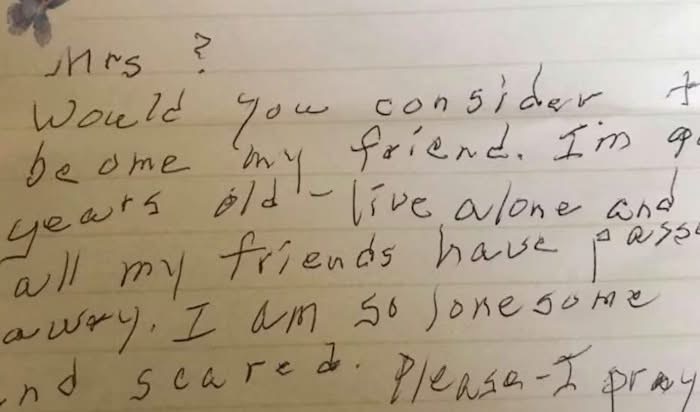 Mrs ?
Would you consider t
beome my friend. I'm 9
years old - live alone and
all my friends have pass
away. I am so lonesome
nd scared. Please - I pray